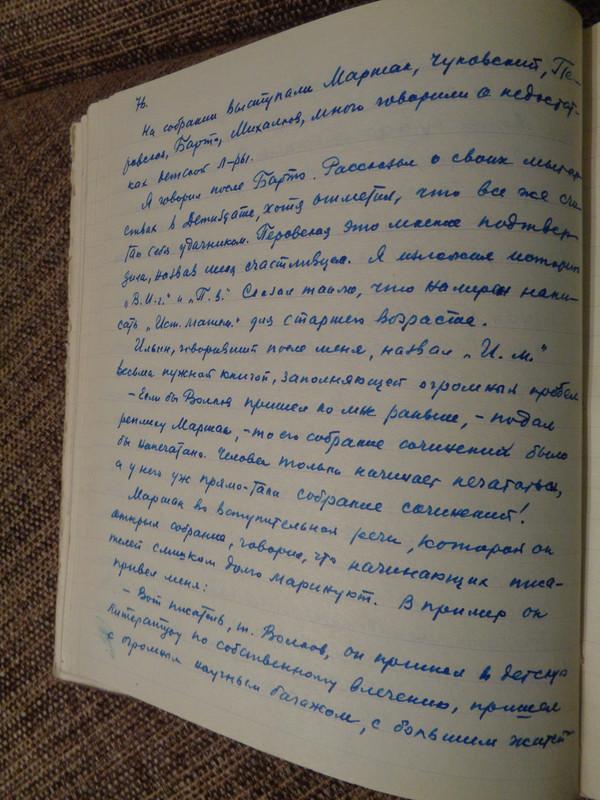 76.
На собрании выступали Маршак, Чуковский, Пе-
ровская, Барто, Михалков, много говорили о недостат-
ках детской л-ры.
Я говорил после Барто. Рассказал о своих мытар-
ствах в Детиздате, хотя отметил, что все же счи-
таю себя удачником. Перовская это мнение подтвер-
дила, назвав меня счастливцем. Я изложил историю
„В.И.г." и „П.в." Сказал также, что намерен напи-
сать „Ист. матем." для старшего возраста.
Ильин, говоривший после меня, назвал „И.м."
весьма нужной книгой, заполняющей огромный пробел
- Если бы Волков пришел ко мне раньше, - подал
реплику Маршак, - то его собрание сочинений было
бы напечатано. Человек только начинает печататься,
а у него уж прямо-таки собрание сочинений!
Маршак во вступительной речи, которой он
открыл собрание, говорил, что начинающих писа-
телей слишком долго маринуют. В пример он
привел меня:
- Вот писатель, т. Волков, он пришел в детскую
литературу по собственному влечению, пришел
с огромным научным багажом, с большим житей